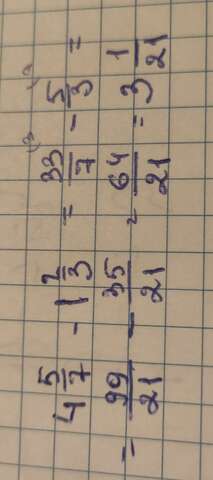 4 5/7 - 1 2/3 = 33/7 - 5/3 =
= 99/21 - 35/21 = 64/21 = 3 1/21